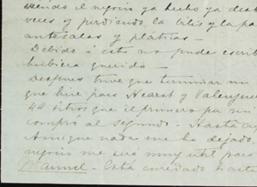 siendo el negocio ya hecho ya desh
veces y perdiendo la bilis y la pa
antesalas y pláticas —
Debido á esto no pude escribi
hubiera querido —
Despues tuve que terminar un
que hice para Hearst y Valenzuel
44 sitios que el primero
compró al segundo — Hasta
Aunque nada me ha dejado
negocio me será muy útil para
Manuel — Está enredado hasta